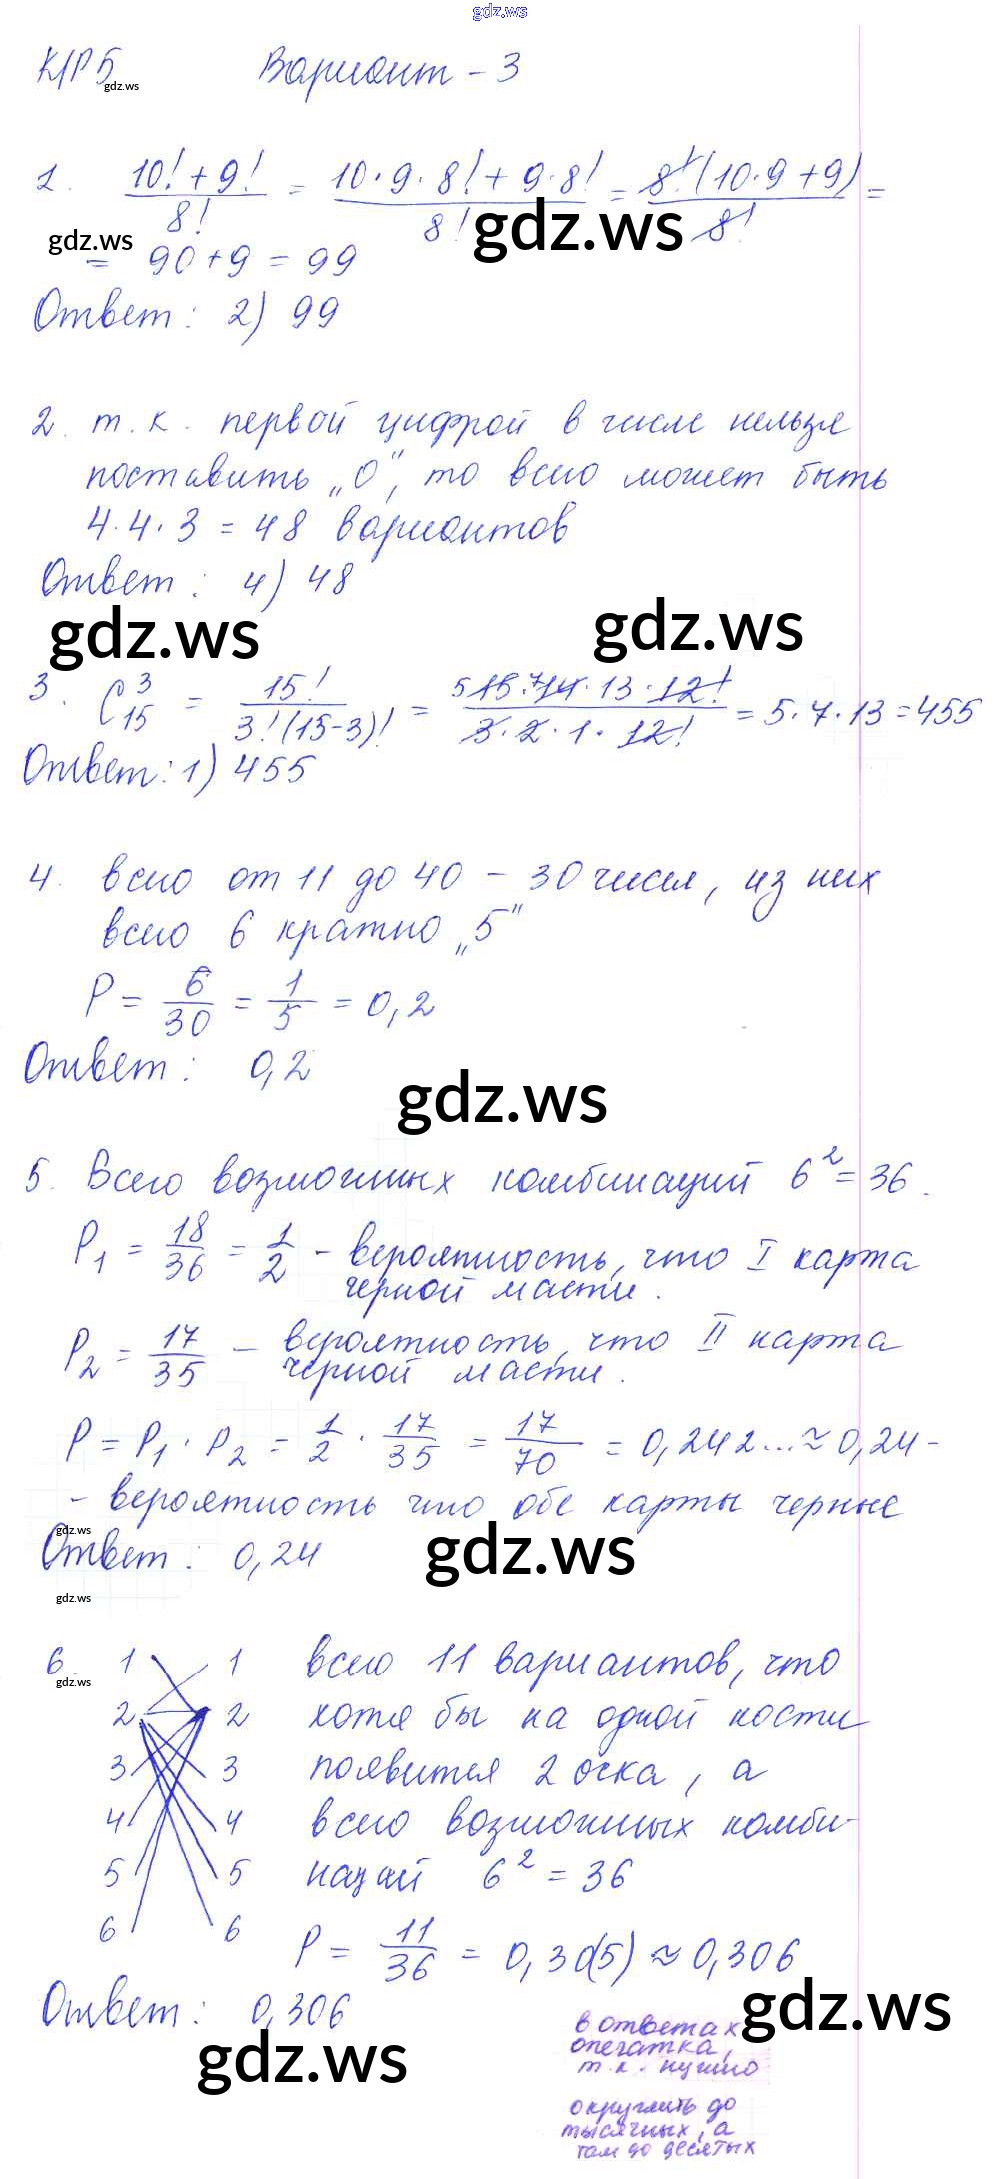 gdz.ws
К/Р 5 Вариант - 3
gdz.ws
1. (10! + 9!)/8! = (10·9·8! + 9·8!)/8! = 8!(10·9+9)/8! =
gdz.ws gdz.ws
= 90+9 = 99
Ответ: 2) 99
2. т.к. первой цифрой в числе нельзя
поставить „0", то всего может быть
4·4·3 = 48 вариантов
Ответ: 4) 48
gdz.ws gdz.ws
3. C₁₅³ = 15!/(3!(15-3)!) = (5 15·7 14·13·12!)/(3·2·1·12!) = 5·7·13=455
Ответ: 1) 455
4. всего от 11 до 40 - 30 чисел, из них
всего 6 кратно „5"
P = 6/30 = 1/5 = 0,2
Ответ: 0,2
gdz.ws
5. Всего возможных комбинаций 6²=36.
P₁ = 18/36 = 1/2 - вероятность, что I карта
черной масти.
P₂ = 17/35 - вероятность, что II карта
черной масти.
P = P₁ · P₂ = 1/2 · 17/35 = 17/70 = 0,242...≈0,24-
- вероятность что обе карты черные
gdz.ws
Ответ: 0,24
gdz.ws
gdz.ws
6. 1 1 всего 11 вариантов, что
gdz.ws
2 2 хотя бы на одной кости
3 3 появится 2 очка, а
4 4 всего возможных комби-
5 5 наций 6² = 36
6 6 P = 11/36 = 0,30(5) ≈ 0,306
Ответ: 0,306
gdz.ws
gdz.ws
в ответах
опечатка,
т.к. нужно
округлить до
тысячных, а
там до десятых